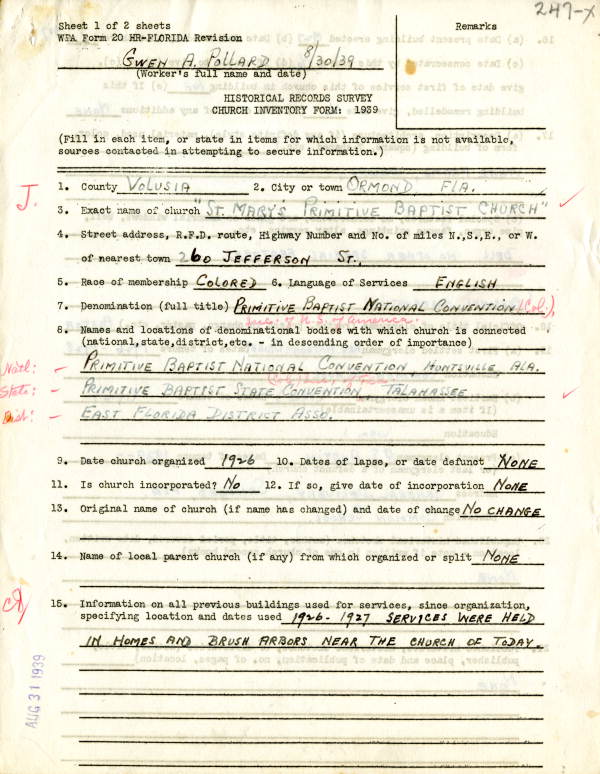 247-X
Sheet 1 of 2 sheets
Remarks
WPA Form 20 HR-FLORIDA Revision
GWEN A. POLLARD 8/30/39
(Worker's full name and date)
HISTORICAL RECORDS SURVEY
CHURCH INVENTORY FORM: 1939
(Fill in each item, or state in items for which information is not available,
sources contacted in attempting to secure information.)
J.
1. County VOLUSIA 2. City or town ORMOND FLA.
3. Exact name of church "ST. MARY'S PRIMITIVE BAPTIST CHURCH"
4. Street address, R.F.D. route, Highway Number and No. of miles N.,S.,E., or W.
of nearest town 260 JEFFERSON ST.,
5. Race of membership COLORED 6. Language of Services ENGLISH
7. Denomination (full title) PRIMITIVE BAPTIST NATIONAL CONVENTION (Col.),
of U.S. of America.
8. Names and locations of denominational bodies with which church is connected
(national,state,district,etc. - in descending order of importance)
Natl: - PRIMITIVE BAPTIST NATIONAL CONVENTION, HUNTSVILLE, ALA.
State: - PRIMITIVE BAPTIST STATE CONVENTION, TALAHASSEE
Dist: - EAST FLORIDA DISTRICT ASSO.
9. Date church organized 1926 10. Dates of lapse, or date defunct NONE
11. Is church incorporated? NO 12. If so, give date of incorporation NONE
13. Original name of church (if name has changed) and date of change NO CHANGE
14. Name of local parent church (if any) from which organized or split NONE
15. Information on all previous buildings used for services, since organization,
specifying location and dates used 1926-1927 SERVICES WERE HELD
IN HOMES AND BRUSH ARBORS NEAR THE CHURCH OF TODAY.
AUG 31 1939